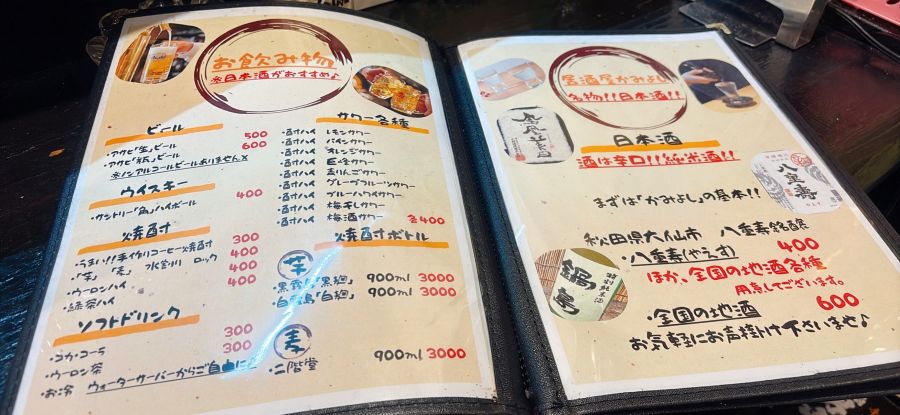 お飲み物
※日本酒がおすすめ♪
ビール
・アサヒ「生」ビール 500
・アサヒ「瓶」ビール 600
※ノンアルコールビールありません×
ウイスキー
・サントリー「角」ハイボール 400
焼酎
・うまい!!手作りコーヒー焼酎 300
・「芋」「麦」 水割り ロック 400
・ウーロンハイ 400
・緑茶ハイ 400
ソフトドリンク
・コカ・コーラ 300
・ウーロン茶 300
・お冷 ウォーターサーバーからご自由に♪
サワー各種
・酎ハイ レモンサワー
・酎ハイ パインサワー
・酎ハイ オレンジサワー
・酎ハイ 巨峰サワー
・酎ハイ 青りんごサワー
・酎ハイ グレープフルーツサワー
・酎ハイ ブルーハワイサワー
・酎ハイ 梅干しサワー
・酎ハイ 梅酒サワー 各400
焼酎ボトル
芋
・黒霧島「黒麹」 900ml 3000
・白霧島「白麹」 900ml 3000
麦
・二階堂 900ml 3000
居酒屋かみよし
名物!!日本酒!!
日本酒
酒は辛口!!純米酒!!
八重寿
まずは「かみよし」の基本!!
秋田県大仙市 八重寿銘醸
・八重寿(やえす) 400
ほか、全国の地酒各種
用点してございます。
・全国の地酒 600
お気軽にお声掛け下さいませ♪
特別純米酒